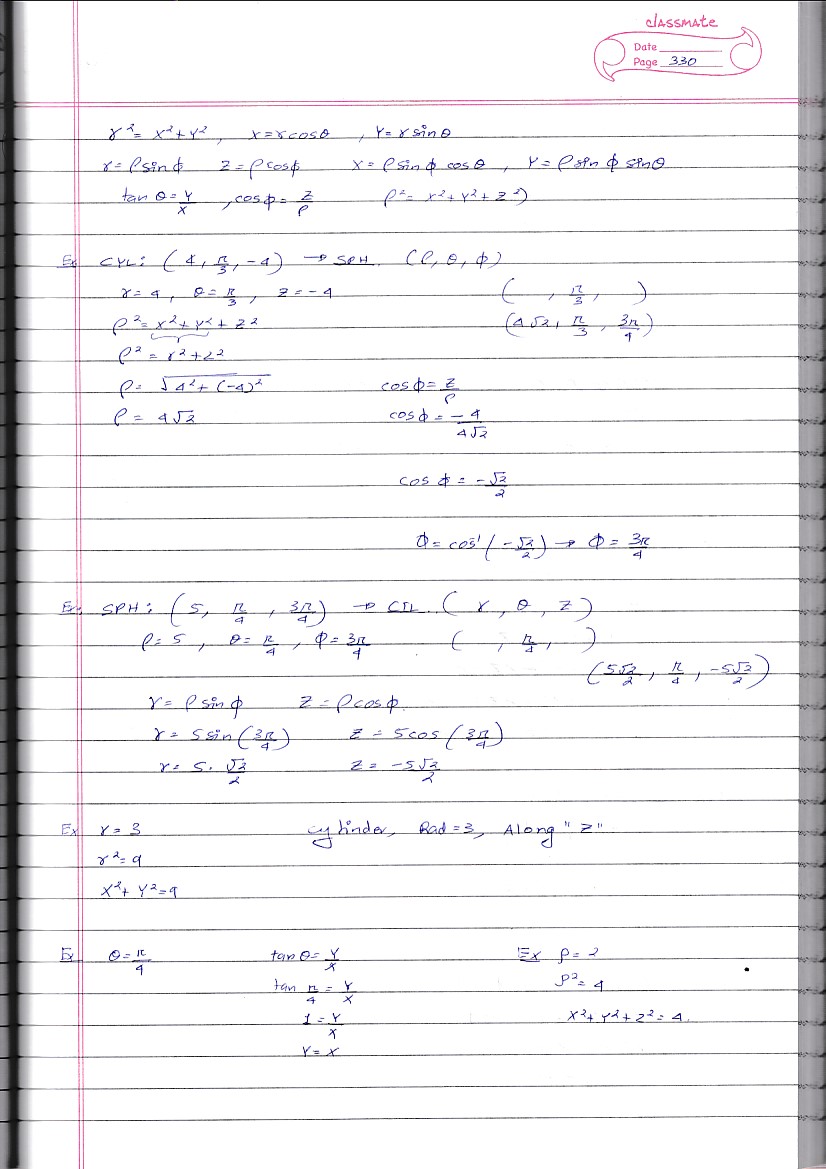 classmate
Date
Page 330
r² = x² + y² , x = r cosθ , y = r sinθ
r = ρ sinϕ z = ρ cosϕ x = ρ sinϕ cosθ , y = ρ sinϕ sinθ
tan θ = y/x , cosϕ = z/ρ ρ² = x² + y² + z² )
Ex CYL: (4, π/3, -4) → SPH. (ρ, θ, ϕ)
r = 4 , θ = π/3 , z = -4 ( , π/3, )
ρ² = x² + y² + z² (4√2, π/3, 3π/4)
ρ² = r² + z²
ρ = √(4² + (-4)²) cosϕ = z/ρ
ρ = 4√2 cosϕ = -4/4√2
cos ϕ = -√2/2
ϕ = cos⁻¹(-√2/2) → ϕ = 3π/4
Ex: SPH: (5, π/4, 3π/4) → CYL. (r, θ, z)
ρ = 5 , θ = π/4 , ϕ = 3π/4 ( , π/4, )
(5√2/2, π/4, -5√2/2)
r = ρ sinϕ z = ρ cosϕ
r = 5 sin(3π/4) z = 5 cos(3π/4)
r = 5 · √2/2 z = -5√2/2
Ex r = 3 cylinder, Rad = 3, Along "Z"
r² = 9
x² + y² = 9
Ex θ = π/4 tan θ = y/x Ex ρ = 2
tan π/4 = y/x ρ² = 4
1 = y/x x² + y² + z² = 4
y = x